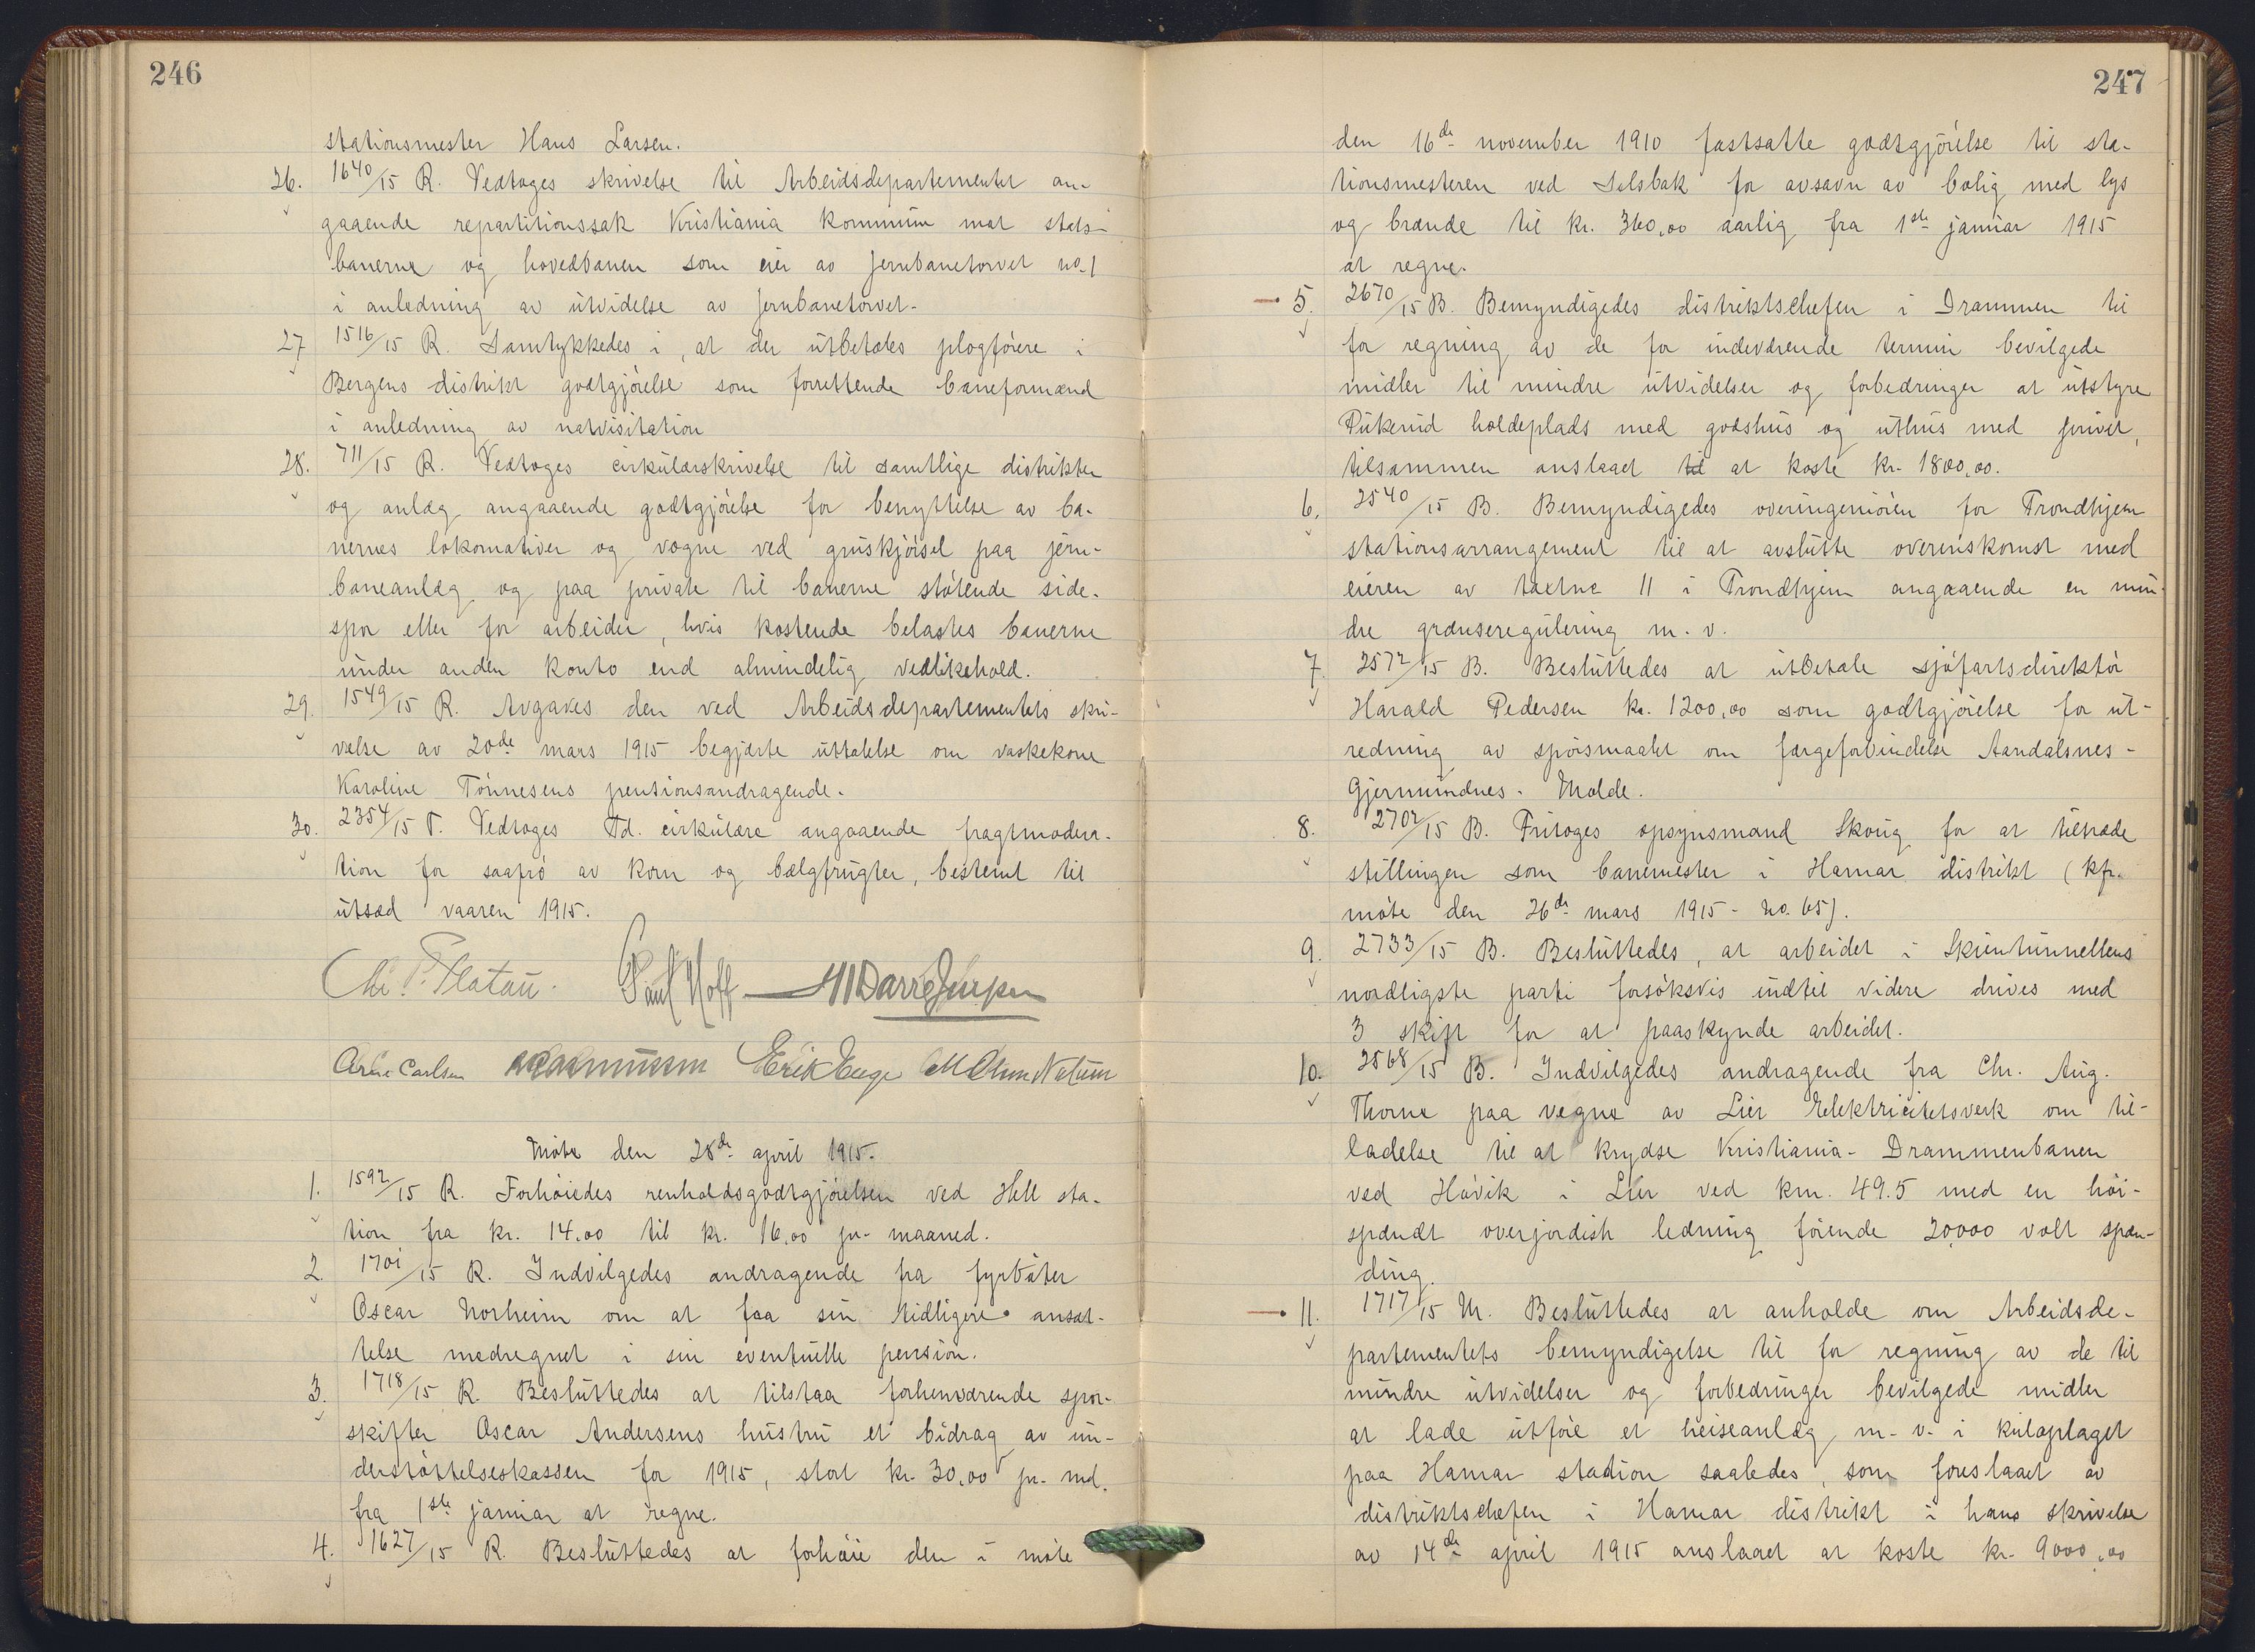 246
stationsmester Hans Larsen.
26. 1640/15 R. Vedtoges skrivelse til Arbeidsdepartementet an-
gaaende repartitionssak Kristiania kommune mot stats-
banerne og hovedbanen som eier av Jernbanetorvet no. 1
i anledning av utvidelse av Jernbanetorvet.
27 1516/15 R. Samtykkedes i, at der utbetales plogförere i
Bergens distrikt godtgjörelse som forrettende baneformænd
i anledning av natvisitation
28. 711/15 R. Vedtoges cirkulærskrivelse til samtlige distrikter
og anlæg angaaende godtgjörelse for benyttelse av ba-
nernes lokomotiver og vogne ved gruskjörsel paa jern-
baneanlæg og paa private til banerne stötende side-
spor eller for arbeider, hvis kostende belastes banerne
under anden konto end almindelig vedlikehold.
29. 1549/15 R. Avgaves den ved Arbeidsdepartementets skri-
velse av 20de mars 1915 begjærte uttalelse om vaskekone
Karoline Tönnesens pensionsandragende.
30. 2354/15 T. Vedtoges Td. cirkulære angaaende fragtmodera-
tion for saafrö av korn og bælgfrugter, bestemt til
utsæd vaaren 1915.
Chr. P. Platou. Paul Hoff Darre Jenssen
Arne Carlsen Rasmussen Erik Enge
Möte den 28de april 1915.
1. 1592/15 R. Forhöiedes renholdsgodtgjörelsen ved Hell sta-
tion fra kr. 14.00 til kr. 16.00 pr. maaned.
2. 1701/15 R. Indvilgedes andragende fra fyrböter
Oscar Norheim om at faa sin tidligere ansæt-
telse medregnet i sin eventuelle pension.
3. 1718/15 R. Besluttedes at tilstaa forhenværende spor-
skifter Oscar Andersens hustru et bidrag av un-
derstöttelseskassen for 1915, stort kr. 30.00 pr. md.
fra 1ste januar at regne.
4. 1627/15 R. Besluttedes at forhöie den i möte
247
den 16de november 1910 fastsatte godtgjörelse til sta-
tionsmesteren ved Selsbak for avsavn av bolig med lys
og brænde til kr. 360.00 aarlig fra 1ste januar 1915
at regne.
5. 2670/15 B. Bemyndigedes distriktschefen i Drammen til
for regning av de for indeværende termin bevilgede
midler til mindre utvidelser og forbedringer at utstyre
Pukerud holdeplads med godshus og uthus med privet,
tilsammen anslaaet til at koste kr. 1800.00.
6. 2540/15 B. Bemyndigedes overingeniören for Trondhjem
stationsarrangement til at avslutte overenskomst med
eieren av taxtno 11 i Trondhjem angaaende en min-
dre grænseregulering m. v.
7 2572/15 B. Besluttedes at utbetale sjöfartsdirektör
Harald Pedersen kr. 1200.00 som godtgjörelse for ut-
redning av spörsmaalet om færgeforbindelse Aandalsnes-
Gjermundnes - Molde.
8. 2702/15 B. Fritoges opsynsmand Skoug for at tiltræde
stillingen som banemester i Hamar distrikt (kfr.
möte den 26de mars 1915 - no. 65).
9. 2733/15 B. Besluttedes, at arbeidet i Skientunnellens
nordligste parti forsöksvis indtil videre drives med
3 skift for at paaskynde arbeidet.
10. 2568/15 B. Indvilgedes andragende fra Chr. Aug.
Thorne paa vegne av Lier Elektricitetsverk om til-
ladelse til at krydse Kristiania - Drammenbanen
ved Hövik i Lier ved km. 49.5 med en höi-
spændt overjordisk ledning förende 20000 volt spæn-
ding.
11. 1717/15 M. Besluttedes at anholde om Arbeidsde-
partementets bemyndigelse til for regning av de til
mindre utvidelser og forbedringer bevilgede midler
at lade utföre et heiseanlæg m. v. i kuloplaget
paa Hamar station saaledes, som foreslaaet av
distriktschefen i Hamar distrikt i hans skrivelse
av 14de april 1915 anslaaet at koste kr. 9000.00